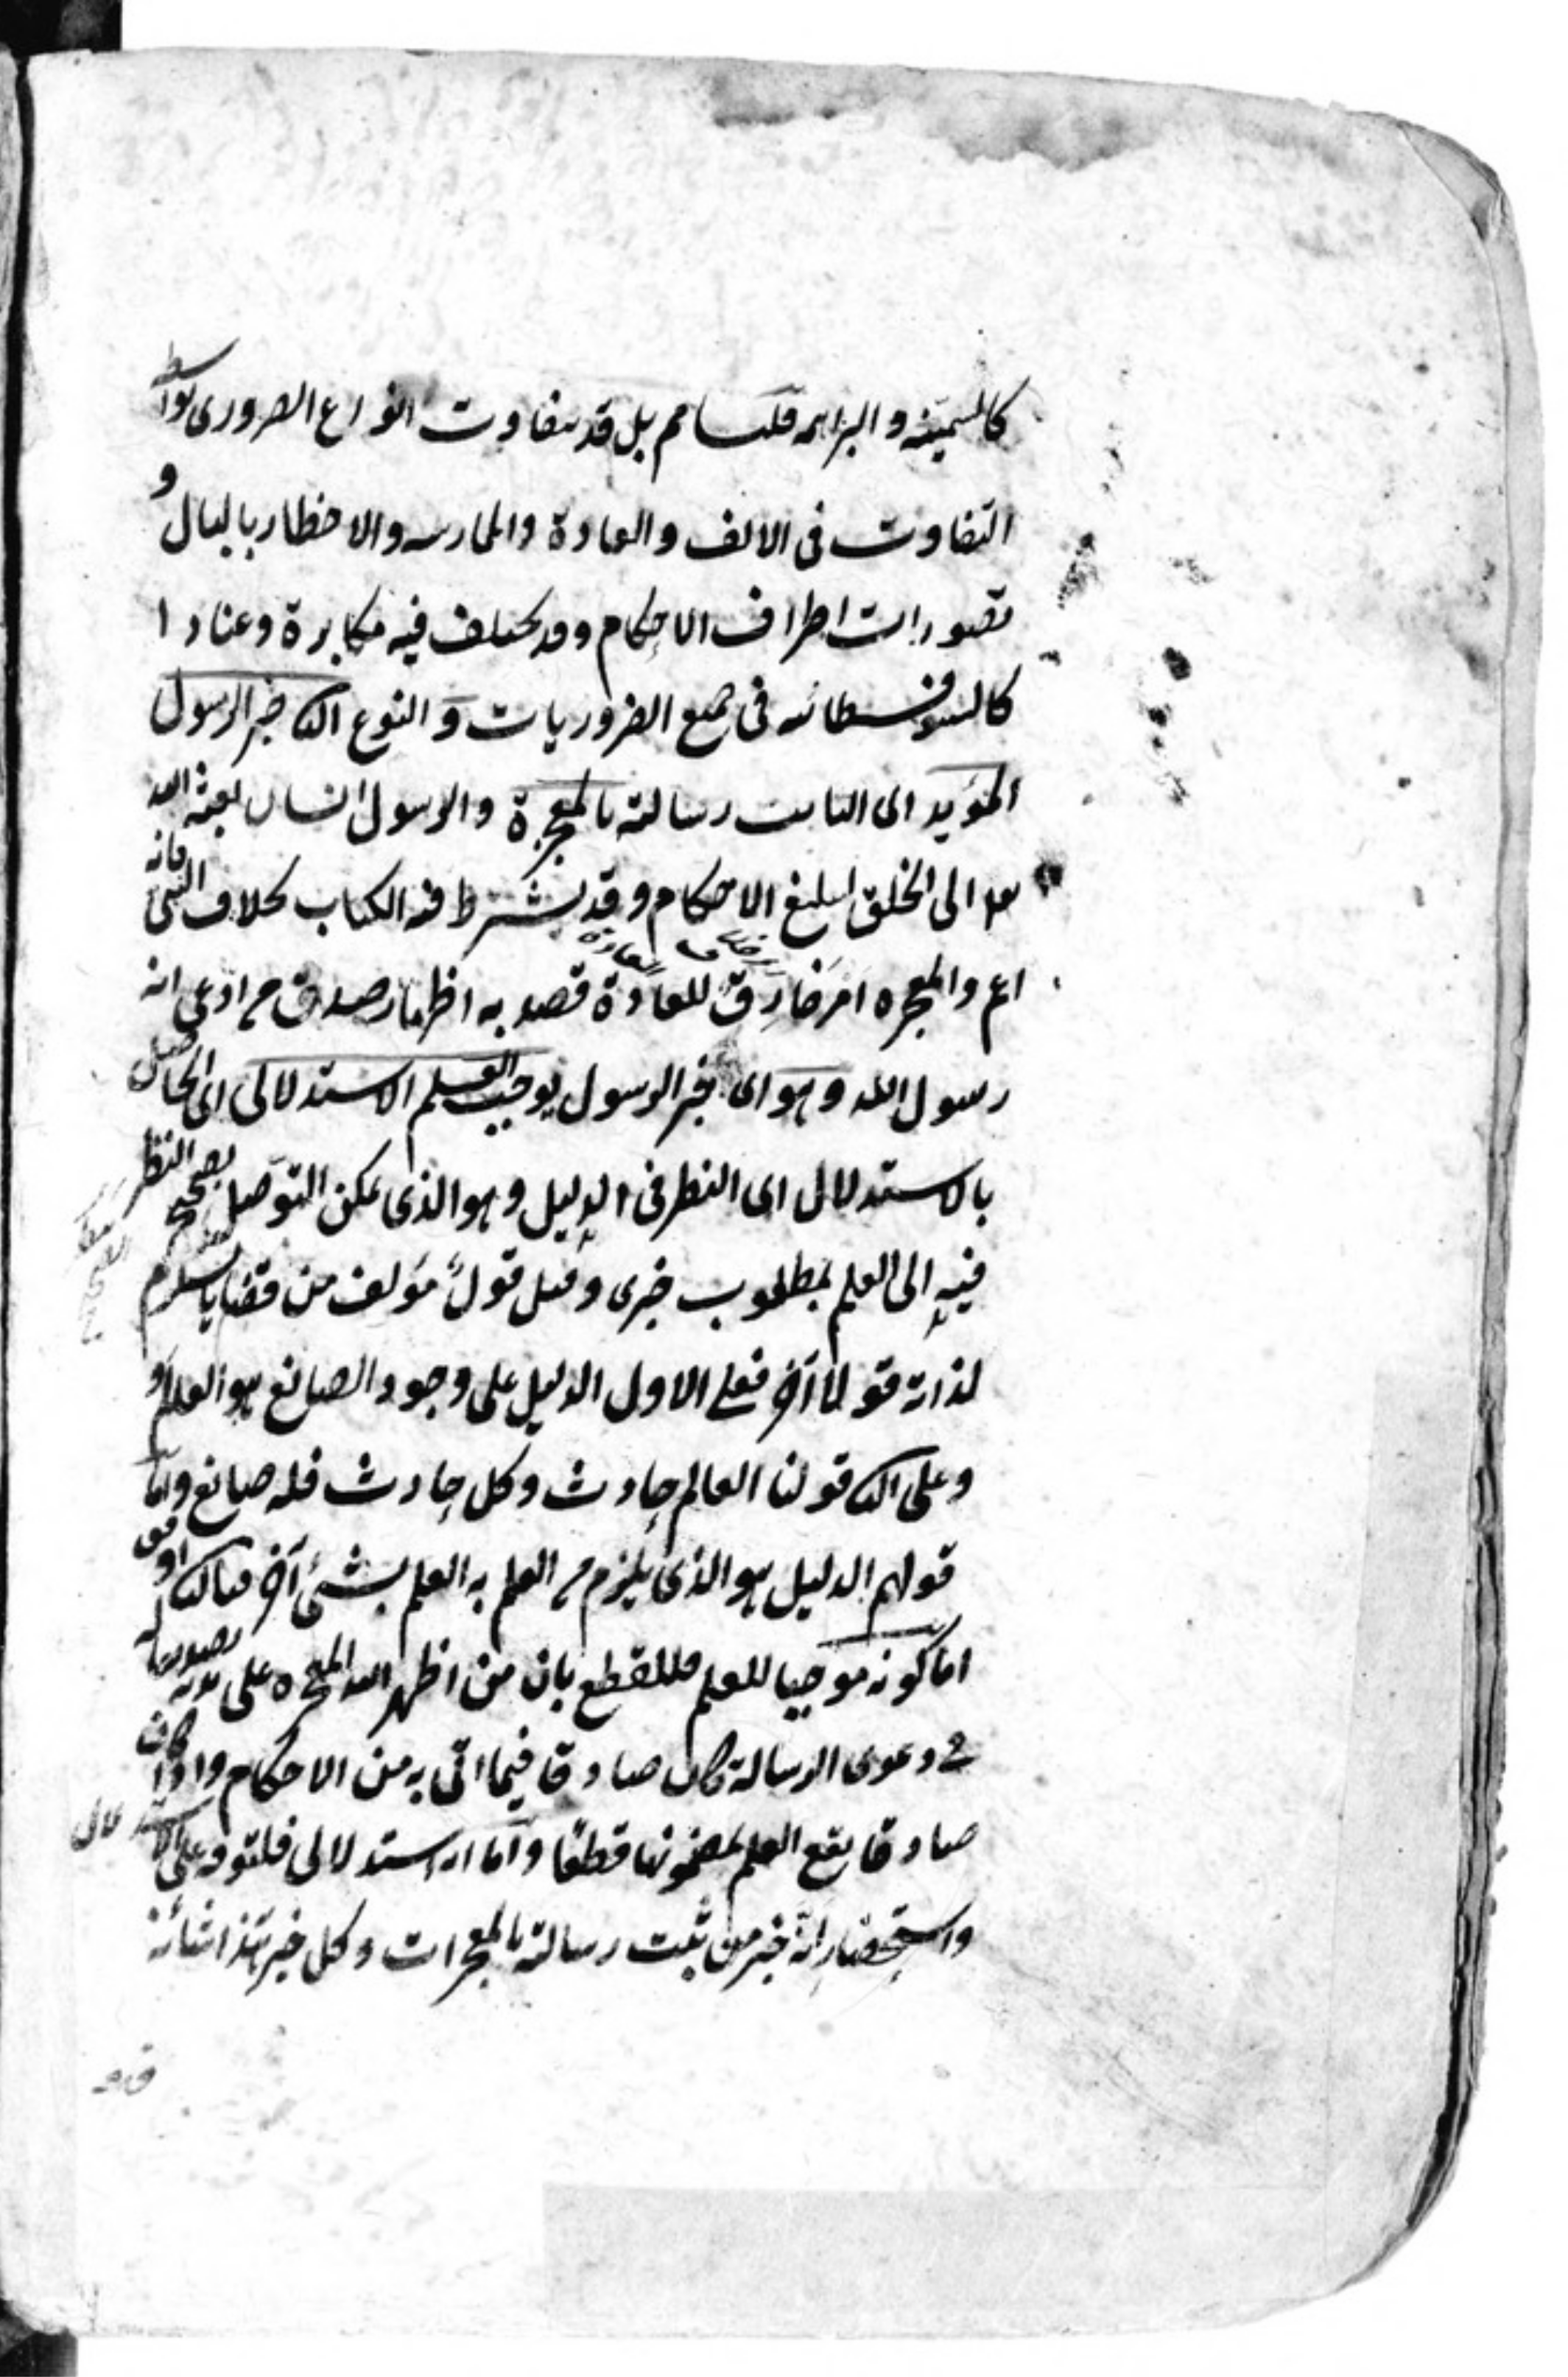 كالسمنية والبراهمة قلنا مم بل قد يتفاوت انواع الضرورى بواسطة
التفاوت فى الالف والعادة والممارسة والاخطار بالبال و
تصورات اطراف الاحكام وقد يختلف فيه مكابرة وعنادا
كالسوفسطائية فى جميع الضروريات والنوع الثا خبر الرسول
المؤيد اى الثابت رسالته بالمعجزة والرسول انسان بعثه الله
تعا الى الخلق لتبليغ الاحكام وقد يشترط فيه الكتاب بخلاف النبى فانه
اعم والمعجزة امر خارق للعادة قصد به اظهار صدق من ادعى انه
رسول الله وهو اى خبر الرسول يوجب العلم الاستدلالى اى الحاصل
بالاستدلال اى النظر فى الدليل وهو الذى يمكن التوصل بصحيح النظر
فيه الى العلم بمطلوب خبرى وقيل قول مؤلف من قضايا يستلزم
لذاته قولا آخر فعلى الاول الدليل على وجود الصانع هو العالم
وعلى الثا قولنا العالم حادث وكل حادث فله صانع واما
قولهم الدليل هو الذى يلزم من العلم به العلم بشئ آخر فبالثا اوفق
اما كونه موجبا للعلم فللقطع بان من اظهر الله المعجزة على يده تصديقا له
فى دعوى الرسالة كان صادقا فيما اتى به من الاحكام واذا كان
صادقا يقع العلم بمضمونها قطعا واما انه استدلالى فلتوقفه على الاستدلال
واستحضار انه خبر من ثبت رسالته بالمعجزات وكل خبر هذا شانه